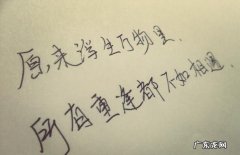 原来浮生万物里.
所有重逢都不如相遇.
广东龙网